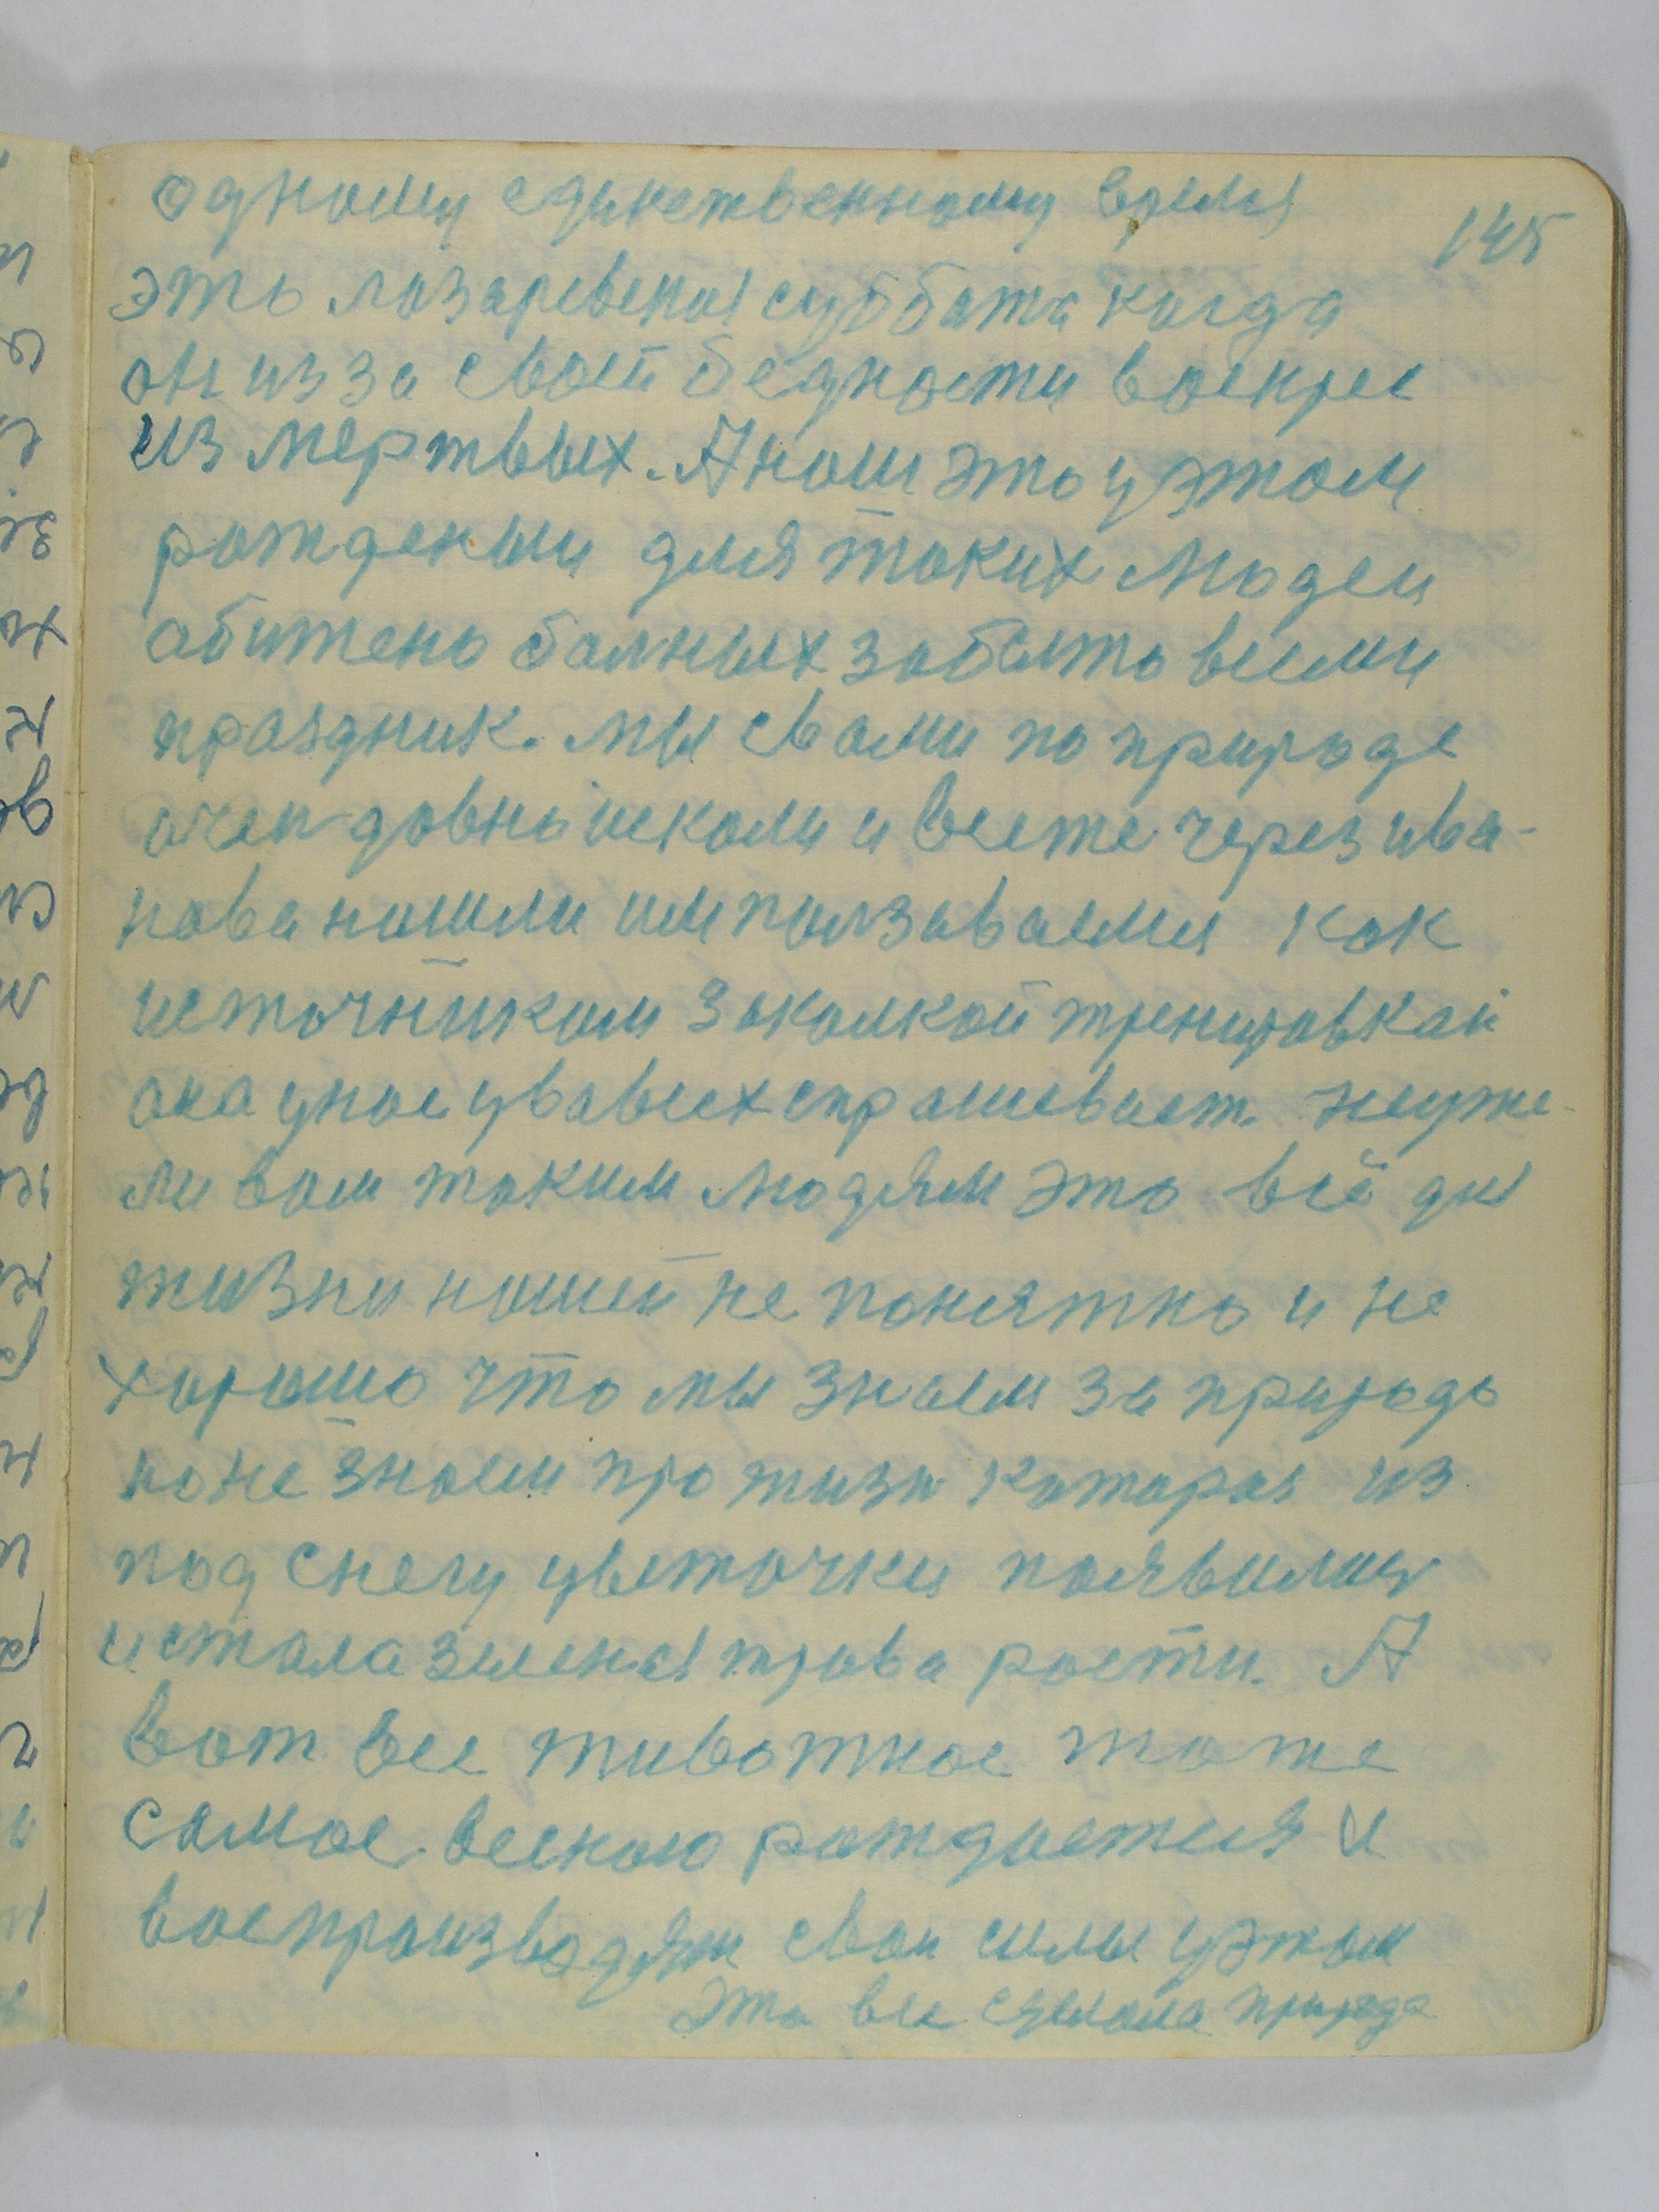 одному единственному время
145
это лазаревская суббота когда
он из за своей бедности воскрес
из мертвых. А нам это у этом
рождении для таких людей
обижено болных забыто всеми
праздник. мы с вами по природе
очен давно искали и все же через ива-
нова нашли им ползаваемы как
источником закалкой тренировкай
она у нас у вавсех спрашевает. неуже-
ли вам таким людям это всё дя
жизни нашей не понятно и не
хорошо что мы знаем за природо
но не знаем про жизн которая из
под снегу цветочки появились
и стала зиленая трава рости. А
вот все животное тоже
самое весною рождается и
воспроизводят свои силы у этом
это все сделала природа